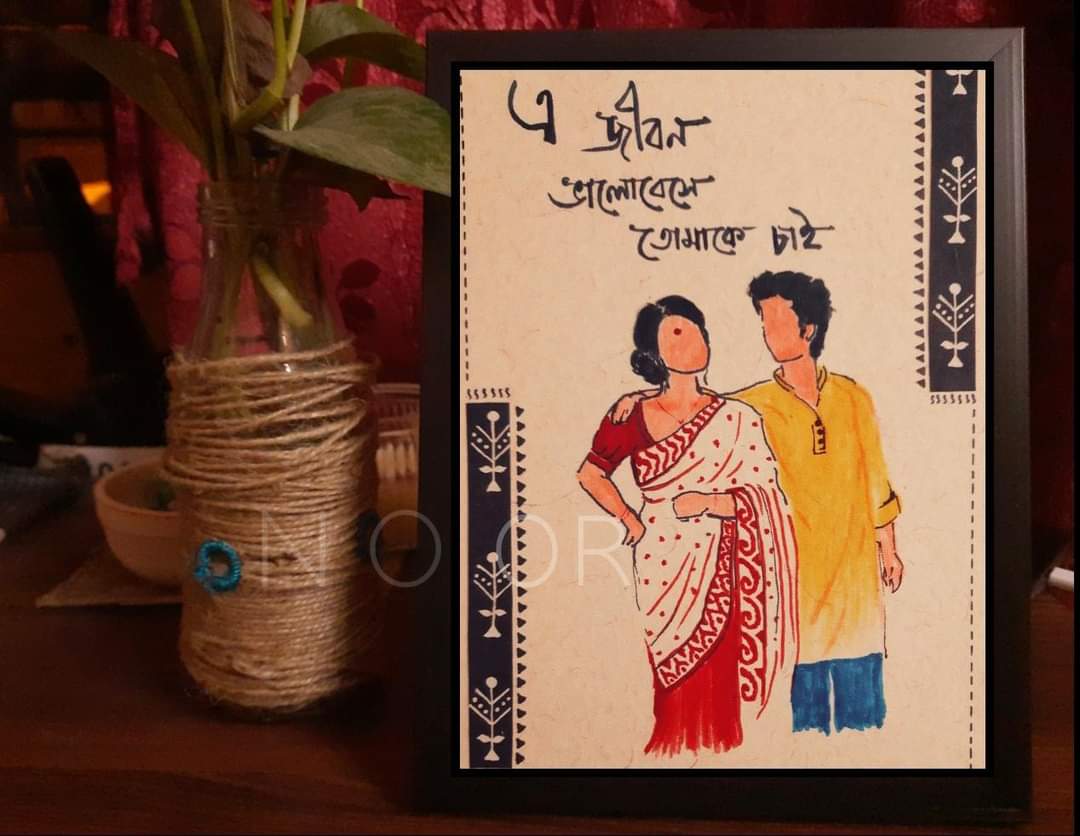 এ জীবন
ভালোবেসে
তোমাকে চাই
NOOR